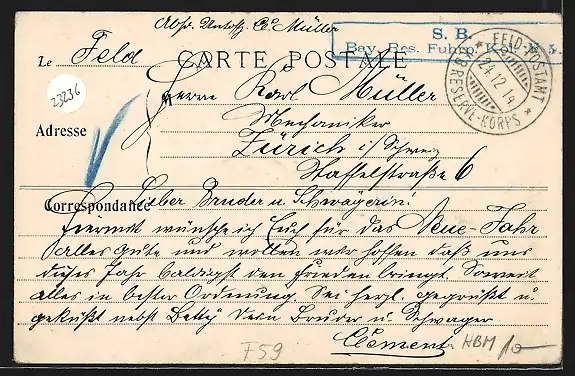 Abs. Untoff. Cl. Müller
S. B.
Bay. Res. Fuhrp. Kol. N 5.
Le Feld
CARTE POSTALE
FELD-POSTAMT
24.12.14
RESERVE-KORPS
23236
Herrn Karl Müller
Mechaniker
Adresse
Zürich i/Schweiz
Staffelstraße 6
Lieber Bruder u. Schwägerin!
Correspondance
Hiermit wünsche ich Euch für das Neue-Jahr
alles Gute und wollen wir hoffen daß uns
dieses Jahr baldigst den Frieden bringt. Soweit
alles in bester Ordnung. Sei herzl. gegrüßt u.
geküßt nebst Betty Dein Bruder u. Schwager
Clement
F59
HBM 10-